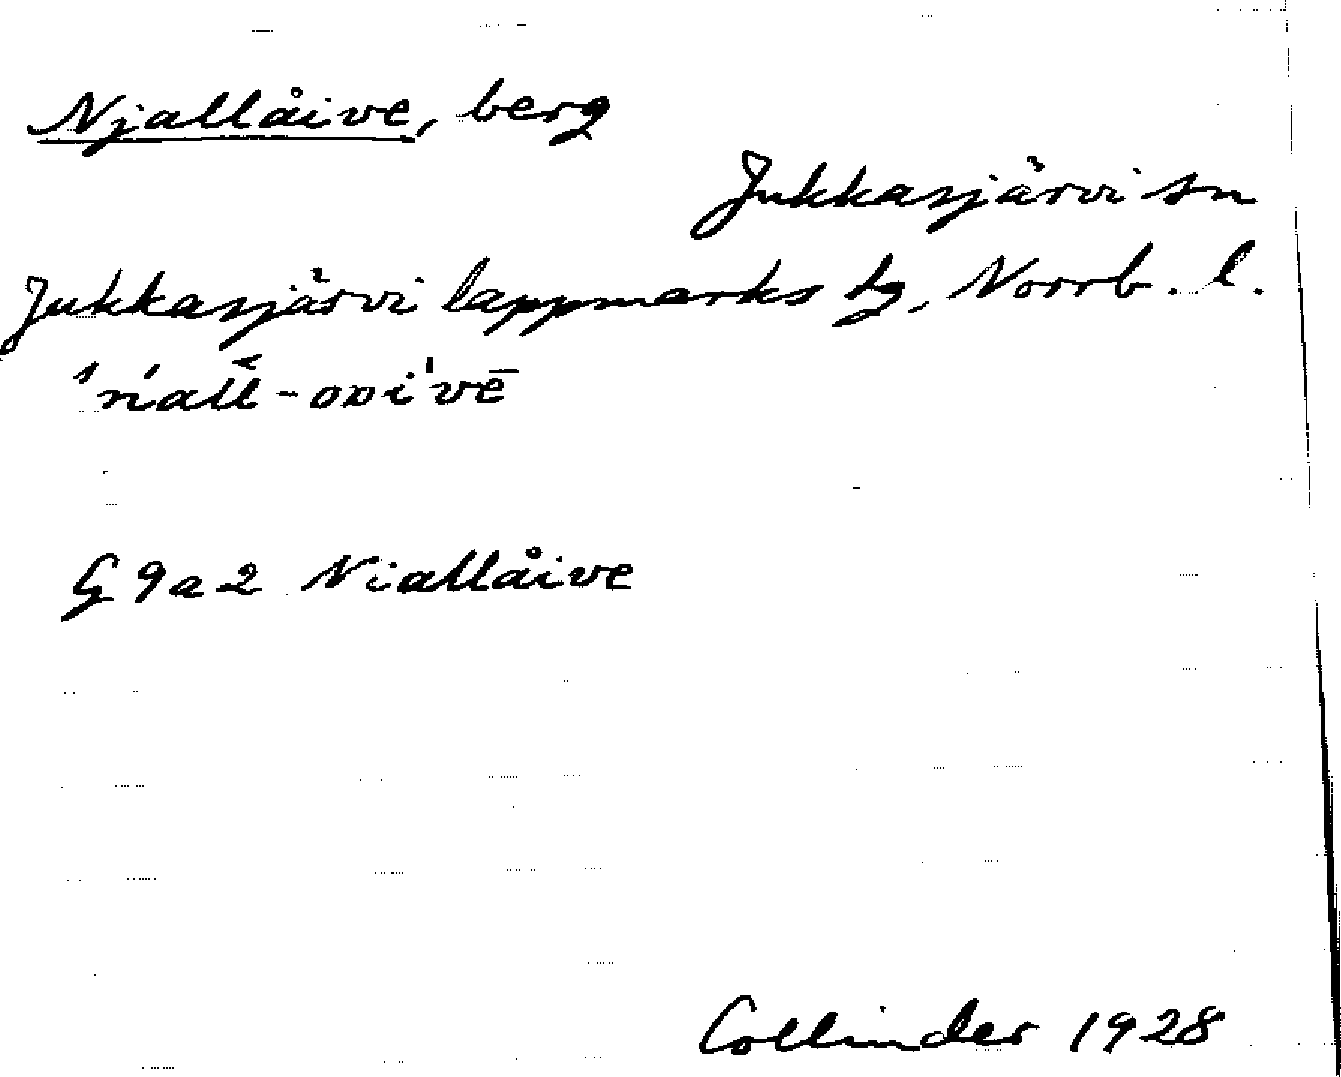 Njallåive, berg
Jukkasjärvi sn
Jukkasjärvi lappmarks tg, Norrb. l.
G 9a2 Niallåive
Collinder 1928